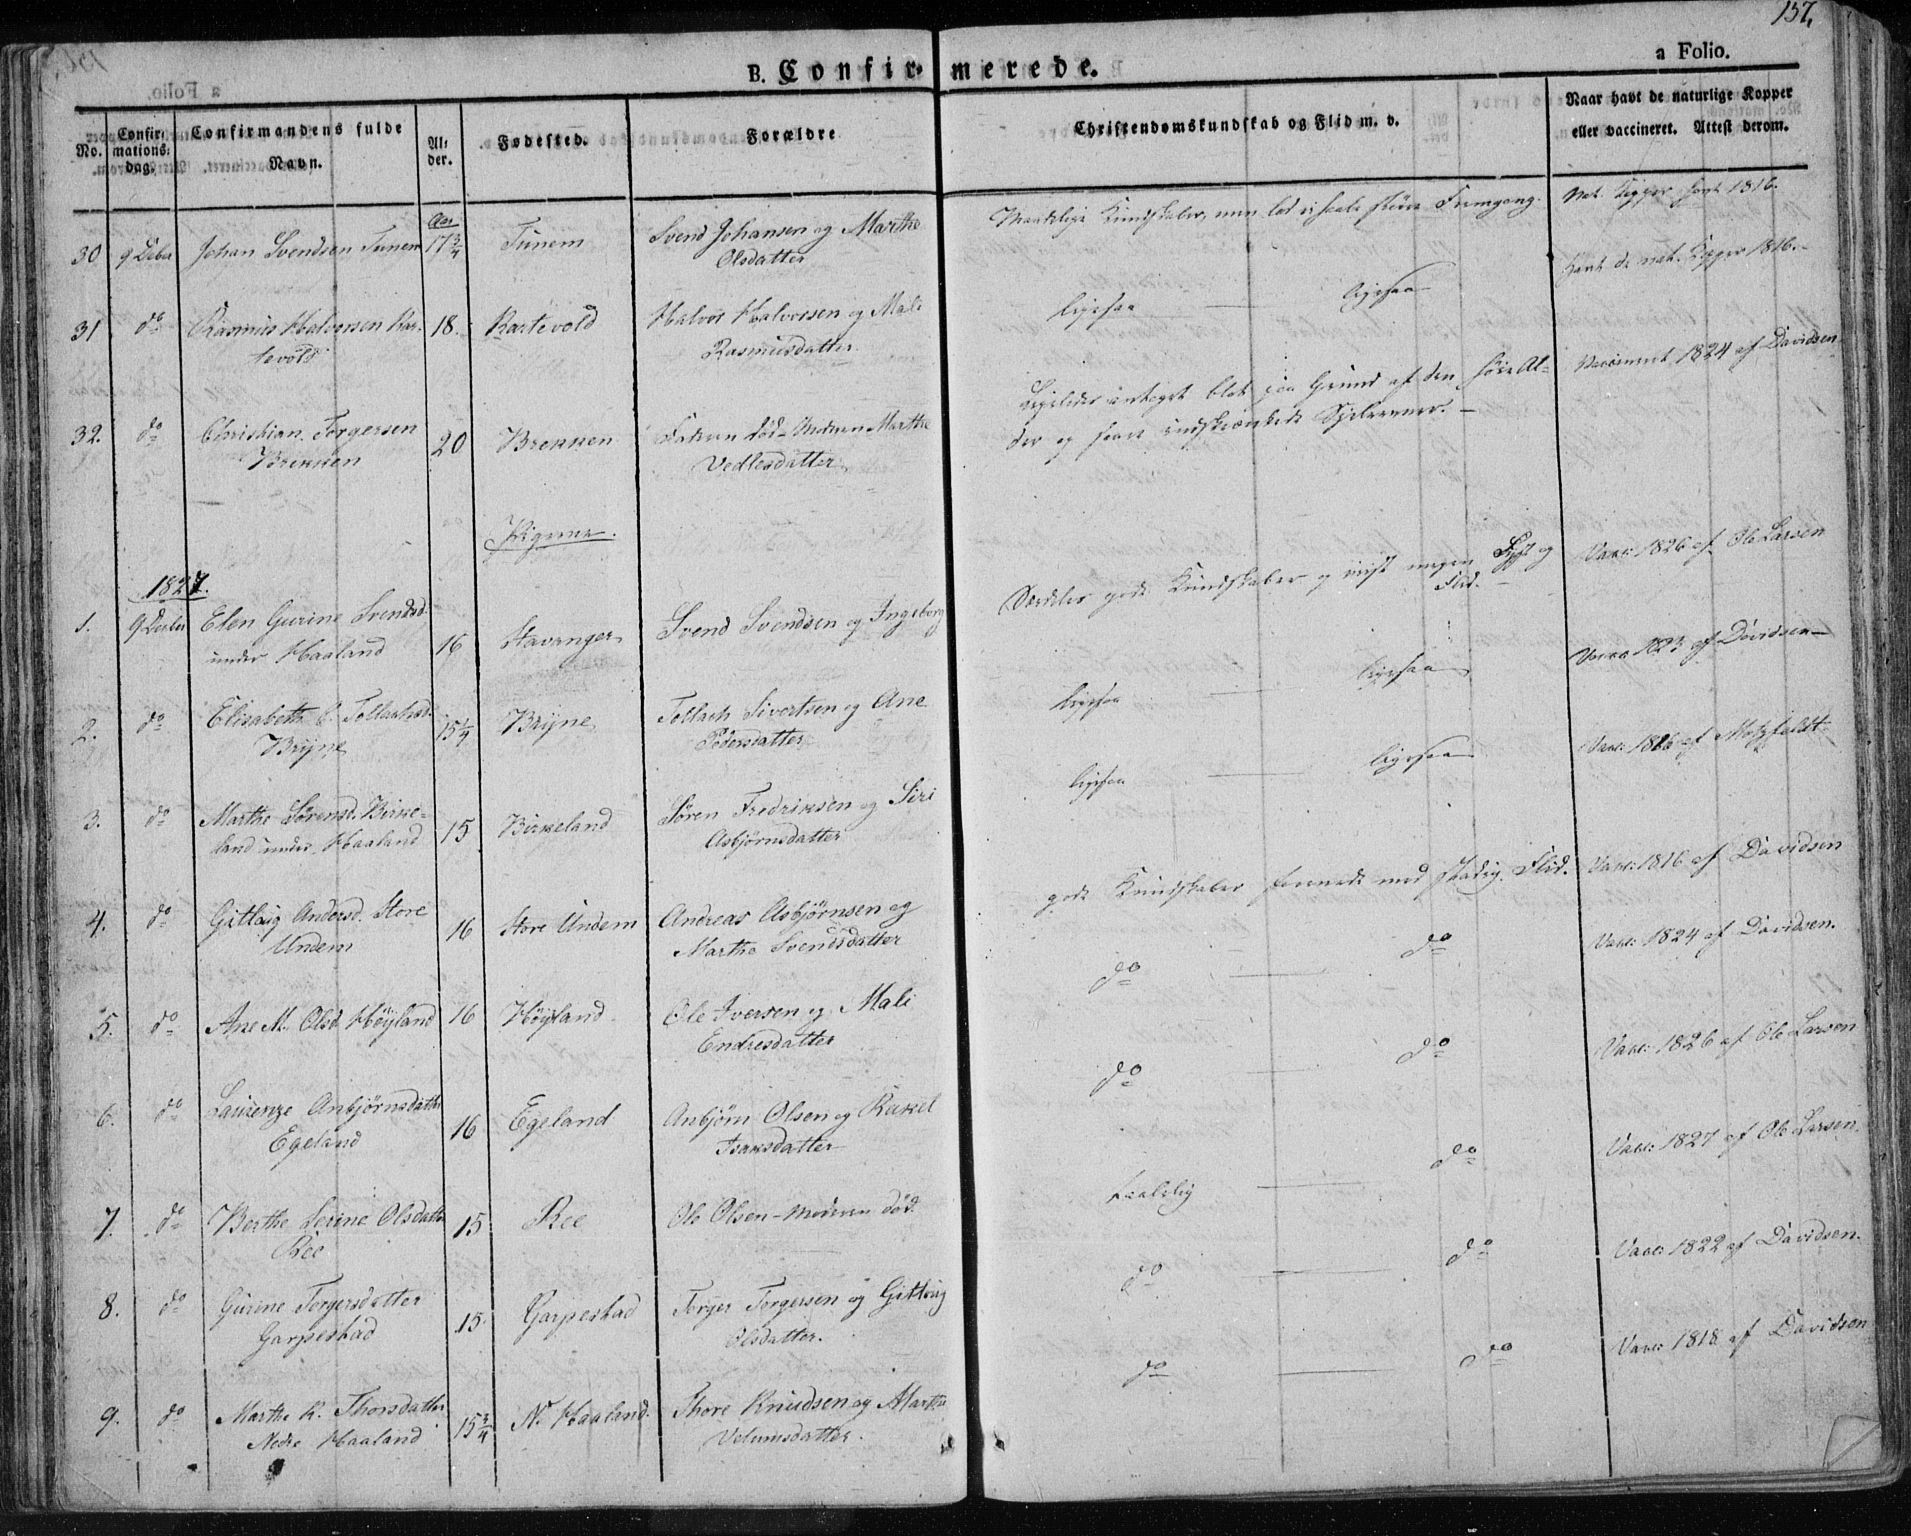 137.
a Folio.
B. Confirmerede.
No. Confirmationsdag. Confirmandens fulde Navn. Alder. Fødested. Forældre Christendomskundskab og Flid m. v. Naar havt de naturlige Kopper eller vaccineret. Attest derom.
Aar
30 9 Dcbr Johan Svendsen Tunem 17 3/4 Tunem Svend Johansen og Marthe Kundskaber, men Fremgang. Nat. Kopper havt 1816.
Olsdatter
31 do Rasmus Halversen Kar- 18. Kartevold Halvor Halvorsen og Mali ligesaa — ligesaa havt de nat. Kopper 1816.
tevold Rasmusdatter
32. do Christian Torgersen 20 Brekken Faderen død – Moderen Marthe Ligeledes antaget blot paa Grund af den høie Al- Vaccineret 1824 af Davidsen
Brekken Vedlesdatter der og indskrænkede Sjeleevner. –
Pigerne.
1827.
1. 9 Decbr Elen Gurine Svendsd. 16 Stavanger Svend Svendsen og Ingeborg Særdeles gode Kundskaber og viist megen Lyst og Vacc: 1826 af Ole Larsen
under Haaland Flid.
2. do Elisabeth C. Tollachsd. 15 1/4 Brÿne Tollach Sivertsen og Ane ligesaa — ligesaa Vacc: 1823 af Davidsen
Brÿne Pedersdatter
3. do Marthe Sørensd. Birke- 15 Birkeland Søren Fredriksen og Siri ligesaa — ligesaa Vacc: 1816 af Motzfeldt
land under Haaland Asbjørnsdatter
4. do Gitlaug Andersd. Store 16 Store Undem Andreas Asbjørnsen og gode Kundskaber forenede med stadig Flid. Vacc: 1816 af Davidsen
Undem Marthe Svendsdatter
5. do Ane M. Olsd. Høÿland 16 Høÿland Ole Iversen og Mali do — do Vacc: 1824 af Davidsen.
Endresdatter
6. do Laurenze Anbjørnsdatter 16 Egeland Anbjørn Olsen og Rakel do — do Vacc: 1826 af Ole Larsen
Egeland Isaksdatter
7. do Berthe Serine Olsdatter 15 Ree Ole Olsen – Moderen død. taalelig — do Vacc: 1827 af Ole Larsen.
Ree
8. do Gurine Torgersdatter 15. Garpestad Torger Torgersen og Gitlaug do — do Vacc: 1822 af Davidsen.
Garpestad Olsdatter.
9. do Marthe K. Thorsdatter 15 3/4 N. Haaland. Thore Knudsen og Marthe do — do Vacc: 1818 af Davidsen
Nedre Haaland Velumsdatter.